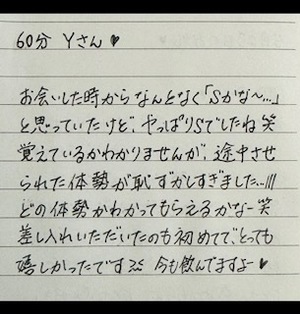 60分 Yさん♥
お会いした時からなんとなく「Sかな～…」
と思っていたけど、やっぱりSでしたね笑
覚えているかわかりませんが、途中させ
られた体勢が恥ずかしすぎました…///
どの体勢かわかってもらえるかなー笑
差し入れいただいたのも初めてで、とっても
嬉しかったです 今も飲んでますよー♥